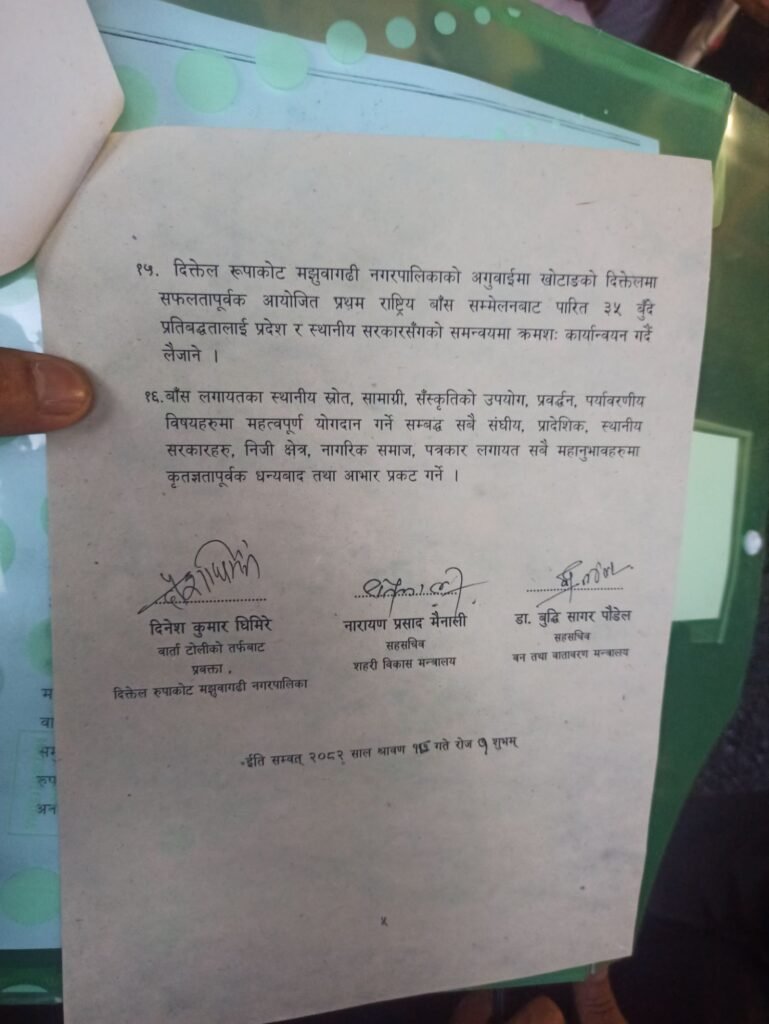 १५. दिक्तेल रूपाकोट मझुवागढी नगरपालिकाको अगुवाईमा खोटाङको दिक्तेलमा
सफलतापूर्वक आयोजित प्रथम राष्ट्रिय बाँस सम्मेलनबाट पारित ३५ बुँदे
प्रतिबद्धतालाई प्रदेश र स्थानीय सरकारसँगको समन्वयमा क्रमशः कार्यान्वयन गर्दै
लैजाने ।
१६.बाँस लगायतका स्थानीय स्रोत, सामाग्री, सँस्कृतिको उपयोग, प्रवर्द्धन, पर्यावरणीय
विषयहरुमा महत्वपूर्ण योगदान गर्ने सम्बद्ध सबै संघीय, प्रादेशिक, स्थानीय
सरकारहरु, निजी क्षेत्र, नागरिक समाज, पत्रकार लगायत सबै महानुभावहरुमा
कृतज्ञतापूर्वक धन्यबाद तथा आभार प्रकट गर्ने ।
दिनेश कुमार घिमिरे
वार्ता टोलीको तर्फबाट
प्रवक्ता .
दिक्तेल रुपाकोट मझुवागढी नगरपालिका
नारायण प्रसाद मैनाली
सहसचिव
शहरी विकास मन्त्रालय
डा. बुद्धि सागर पौडेल
सहसचिव
बन तथा वातावरण मन्त्रालय
ईति सम्वत् २०८२ साल श्रावण गते रोज शुभम्
५
म
वा
सम्
रुप
अन